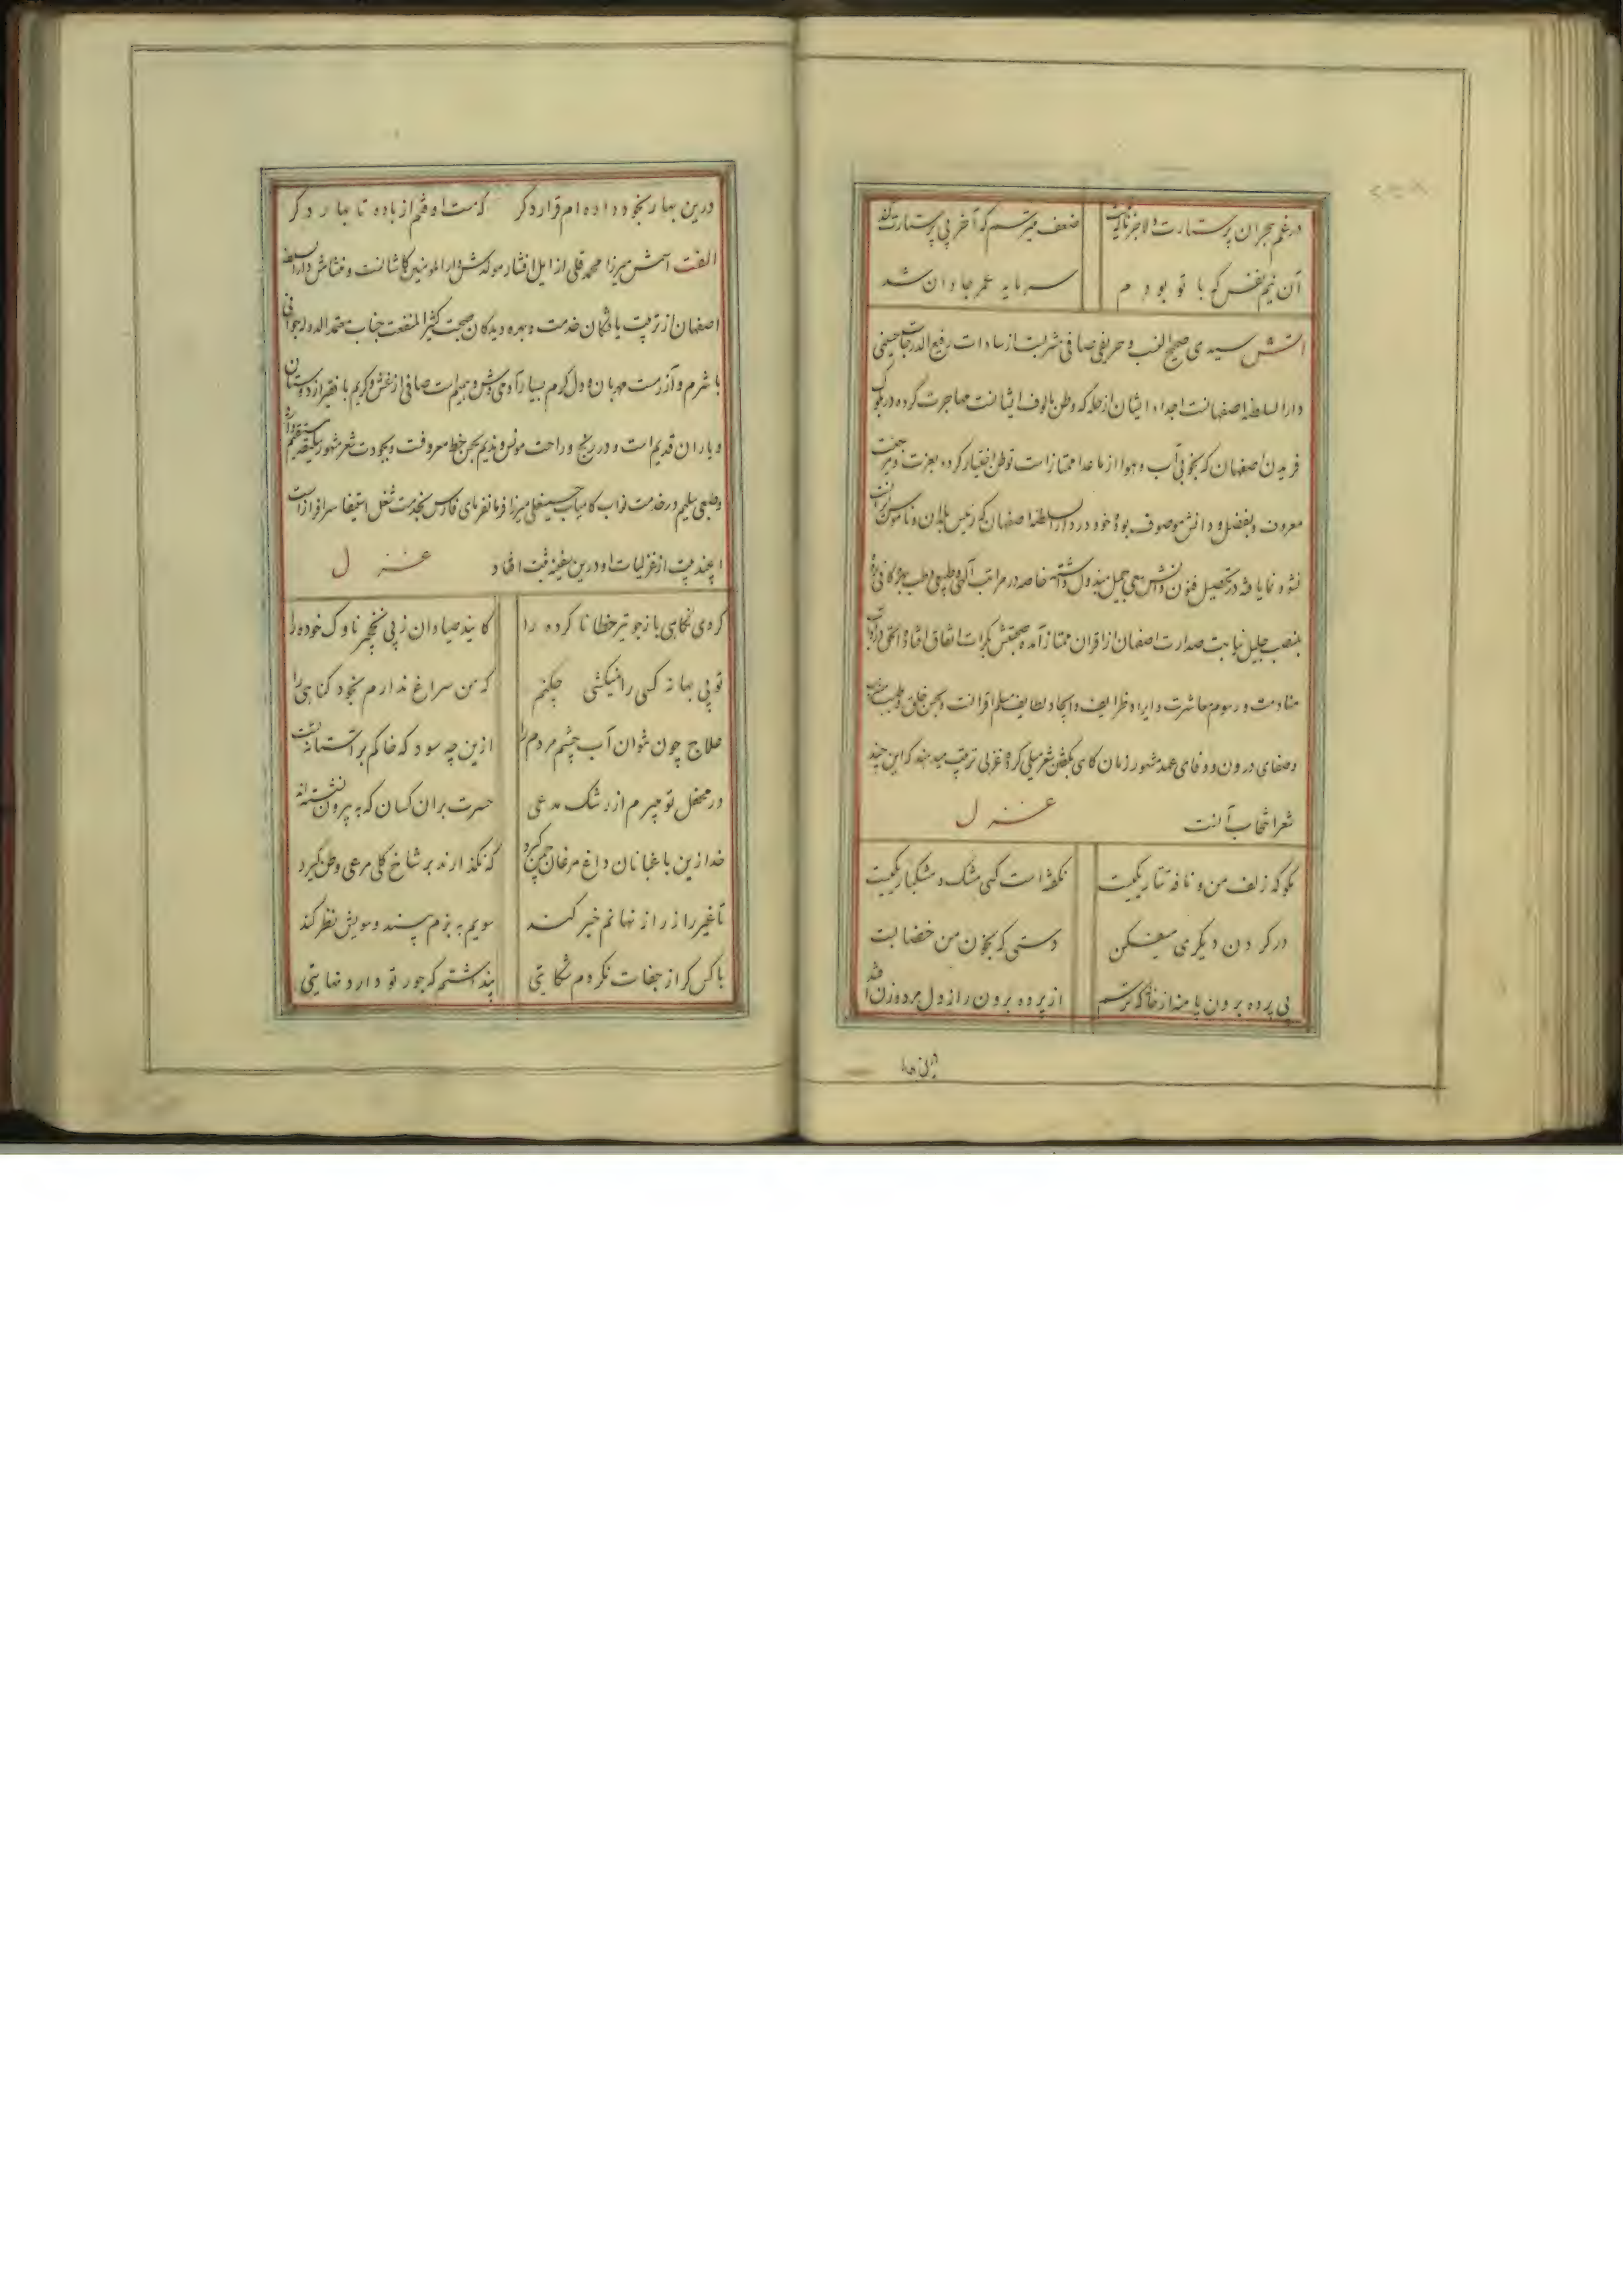 در غم هجران پرستارت دلا جز ناله نیست ضعف میترسم که آخر بی پرستارت کند
آن نیم نفس که با تو بودم سرمایه عمر جاودان شد
آتش سیدی صحیح النسب و حریفی صافی مشربست از سادات رفیع الدرجات حسینی
دارالسلطنه اصفهانست اجداد ایشان از حله که وطن مالوف ایشانست مهاجرت کرده در بلوک
فریدن اصفهان که بخوبی آب و هوا از ماعدا ممتاز است توطن اختیار کرده بعزت و
معروف و بفضل و دانش موصوف بوده خود در دارالسلطنه اصفهان که رئیس بلدان و ناموس ایران است
نشو و نما یافته در تحصیل فنون دانش سعی جمیل مبذول داشته خاصه در مراتب آلهی و طبیعی و طب بهره کافی برده
بمنصب جلیل نیابت صدارت اصفهان از اقران ممتاز آمده صحبتش بکرات اتفاق افتاده الحق در آداب
منادمت و رسوم معاشرت و ایراد ظرایف و ایجاد لطایف مسلم اقرانست و بحسن خلق و طیب
و صفای درون و وفای عهد مشهور زمان گاهی بگفتن شعر میلی کرده غزلی ترتیب میدهند که این چند
شعر انتخاب آنست غزل
بگو که زلف من و نافه تتار یکیست نگفته است کسی مشک و مشکبار یکیست
در گردن دیگری میفکن دستی که بخون من خضابست
بی پرده برون یا منه از خانه که ترسم از پرده برون راز دل مرد و زن افتد
درین بهار
درین بهار بخود داده ام قرار دگر که مست اوفتم از باده تا بهار دگر
الفت اسمش میرزا محمد قلی از ایل افشار مولدش دارالمومنین کاشانست و منشاش دارالسلطنه
اصفهان از تربیت یافتگان خدمت و بهره دیدگان صحبت کثیر المنفعت جناب معتمد الدوله جوانی
با شرم و آزرمست مهربان و دل گرم بسیار آدمی وش و سلیم است صافی از غش و کریم با فقیر از دوستان
و یاران قدیم است و در رنج و راحت مونس و ندیم بحسن خط معروفست و بجودت شعر مشهور سلیقه مستقیم دارد
و طبعی سلیم در خدمت نواب کامیاب حسینعلی میرزا فرمانفرمای فارس بخدمت شغل استیفا سرافراز است
این چند بیت از غزلیات او درین سفینه ثبت افتاد غزل
کردی نگاهی باز جو تیر خطا نا کرده را کایند صیادان ز پی نخجیر ناوک خورده را
تو بی بهانه کسی را نمیکشی چکنم که من سراغ ندارم بخود گناهی را
علاج چون نتوان آب چشم مردم را ازین چه سود که خاکم بر آستانه تست
در محفل تو میرم از رشک مدعی حسرت بر آن کسان که به بیرون نشسته اند
خدا زین باغبانان داغ مرغان چمن گیرد که نگذارند بر شاخ گلی مرغی وطن گیرد
تا غیر را ز راز نهانم خبر کند سویم به بزم بیند و سویش نظر کند
با کس گر از جفات نکردم شکایتی پنداشتم که جور تو دارد نهایتی